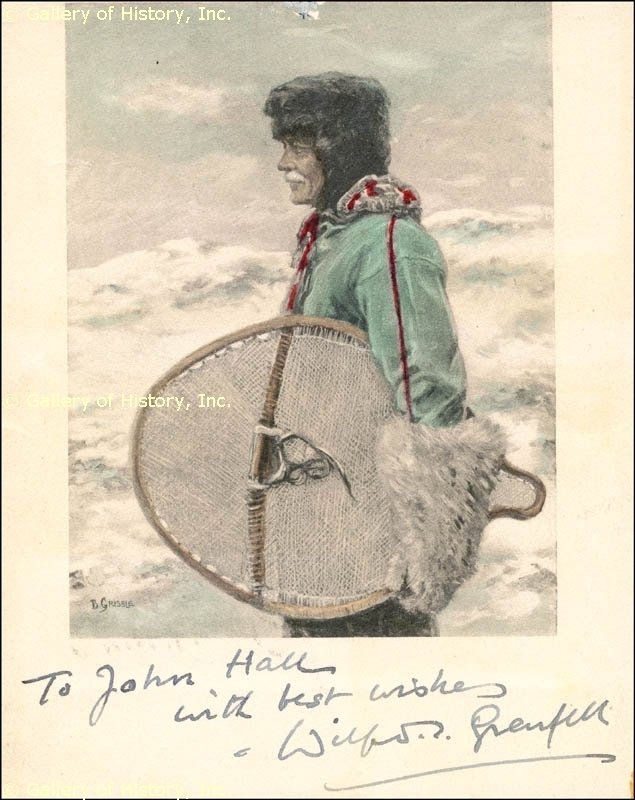 © Gallery of History, Inc.
© Gallery of History, Inc.
B. GRIBBLE
To John Hall
with best wishes
- Wilfred T. Grenfell
© Gallery of History, Inc.